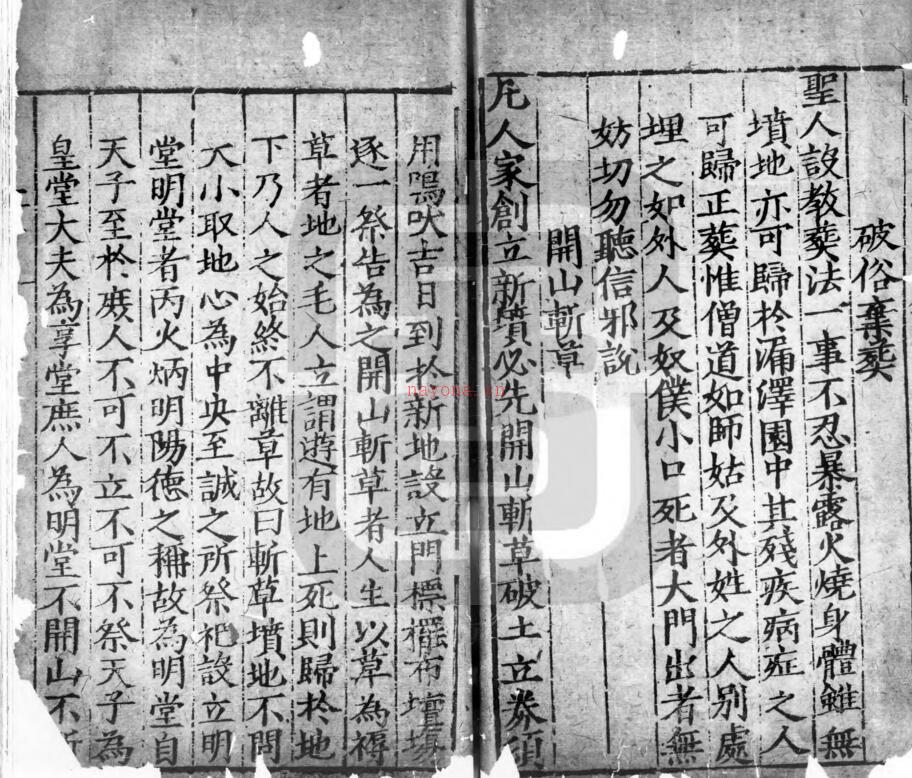 破俗棄葬
聖人設教葬法一事不忍暴露火燒身體雖無
墳地亦可歸於漏澤園中其殘疾病症之人
可歸正葬惟僧道如師姑及外姓之人別處
埋之如外人及奴僕小口死者大門出者無
妨切勿聽信邪說
開山斬草
凡人家創立新墳必先開山斬草破土立券須
用鳴吠吉日到於新地設立門標擺布壇場
逐一祭告為之開山斬草者人生以草為褥
草者地之毛人立謂遊有地上死則歸於地
下乃人之始終不離草故曰斬草墳地不問
大小取地心為中央至誠之所祭祀設立明
堂明堂者丙火炳明陽德之稱故為明堂自
天子至於庶人不可不立不可不祭天子為
皇堂大夫為享堂庶人為明堂不開山不
nayone.cn